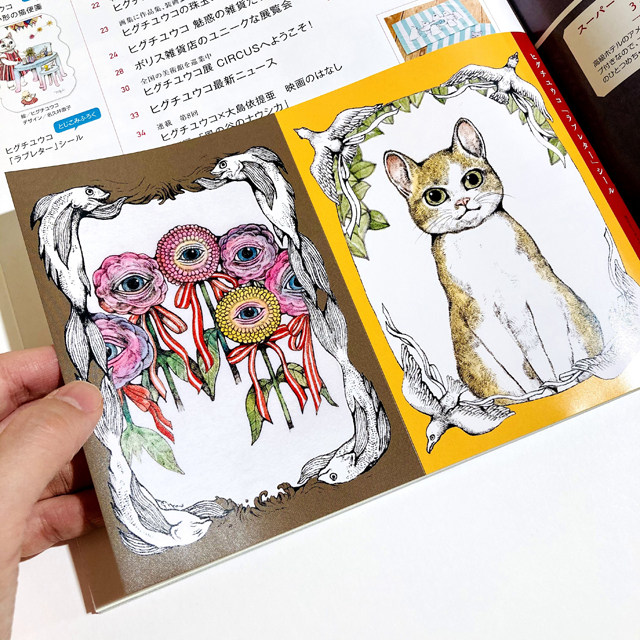 ヒグチユウコ
形の猫便箋
絵／ヒグチユウコ
デザイン／名久井直子
とじこみふろく
ヒグチユウコ
「ラブレター」シール
22
ヒグチユウコの珠玉
24
ヒグチユウコ 魅惑の雑貨た
28
ボリス雑貨店のユニークな展覧会
全国の美術館を巡業中
30
ヒグチユウコ展 CIRCUSへようこそ！
33
ヒグチユウコ最新ニュース
34
連載 第8回
ヒグチユウコ×大島依提亜 映画のはなし
の谷のナウシカ」
スーパー
高級ホテルのアメ
ヒグチユウコ「ラブレター」シール